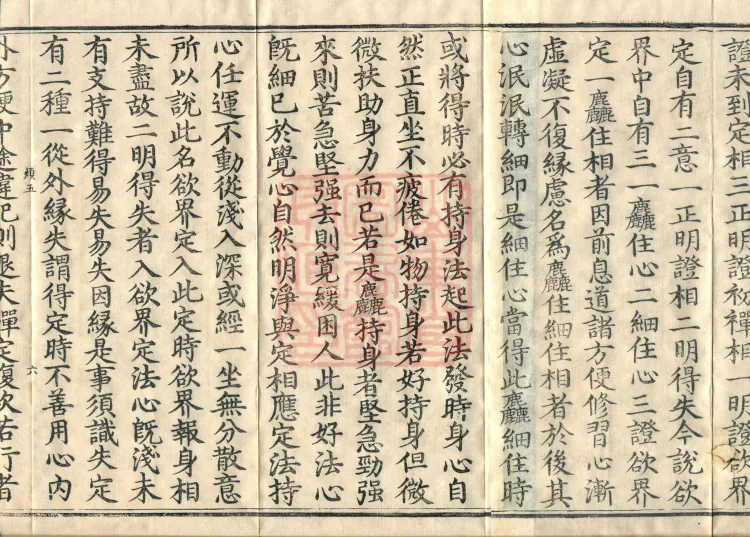 證未到定相三正明證初禪相一明證欲界
定自有二意一正明證相二明得失今說欲
界中自有三一麤住心二細住心三證欲界
定一麤住相者因前息道諸方便修習心漸
虛凝不復緣慮名為麤住細住相者於後其
心泯泯轉細即是細住心當得此麤細住時
或將得時必有持身法起此法發時身心自
然正直坐不疲倦如物持身若好持身但微
微扶助身力而已若是麤持身者堅急勁强
來則苦急堅强去則寬緩困人此非好法心
旣細已於覺心自然明淨與定相應定法持
心任運不動從淺入深或經一坐無分散意
所以說此名欲界定入此定時欲界報身相
未盡故二明得失者入欲界定法心旣淺未
有支持難得易失易失因緣是事須識失定
有二種一從外緣失謂得定時不善用心內
六
外方便中餘違犯則退失禪定復次若行者